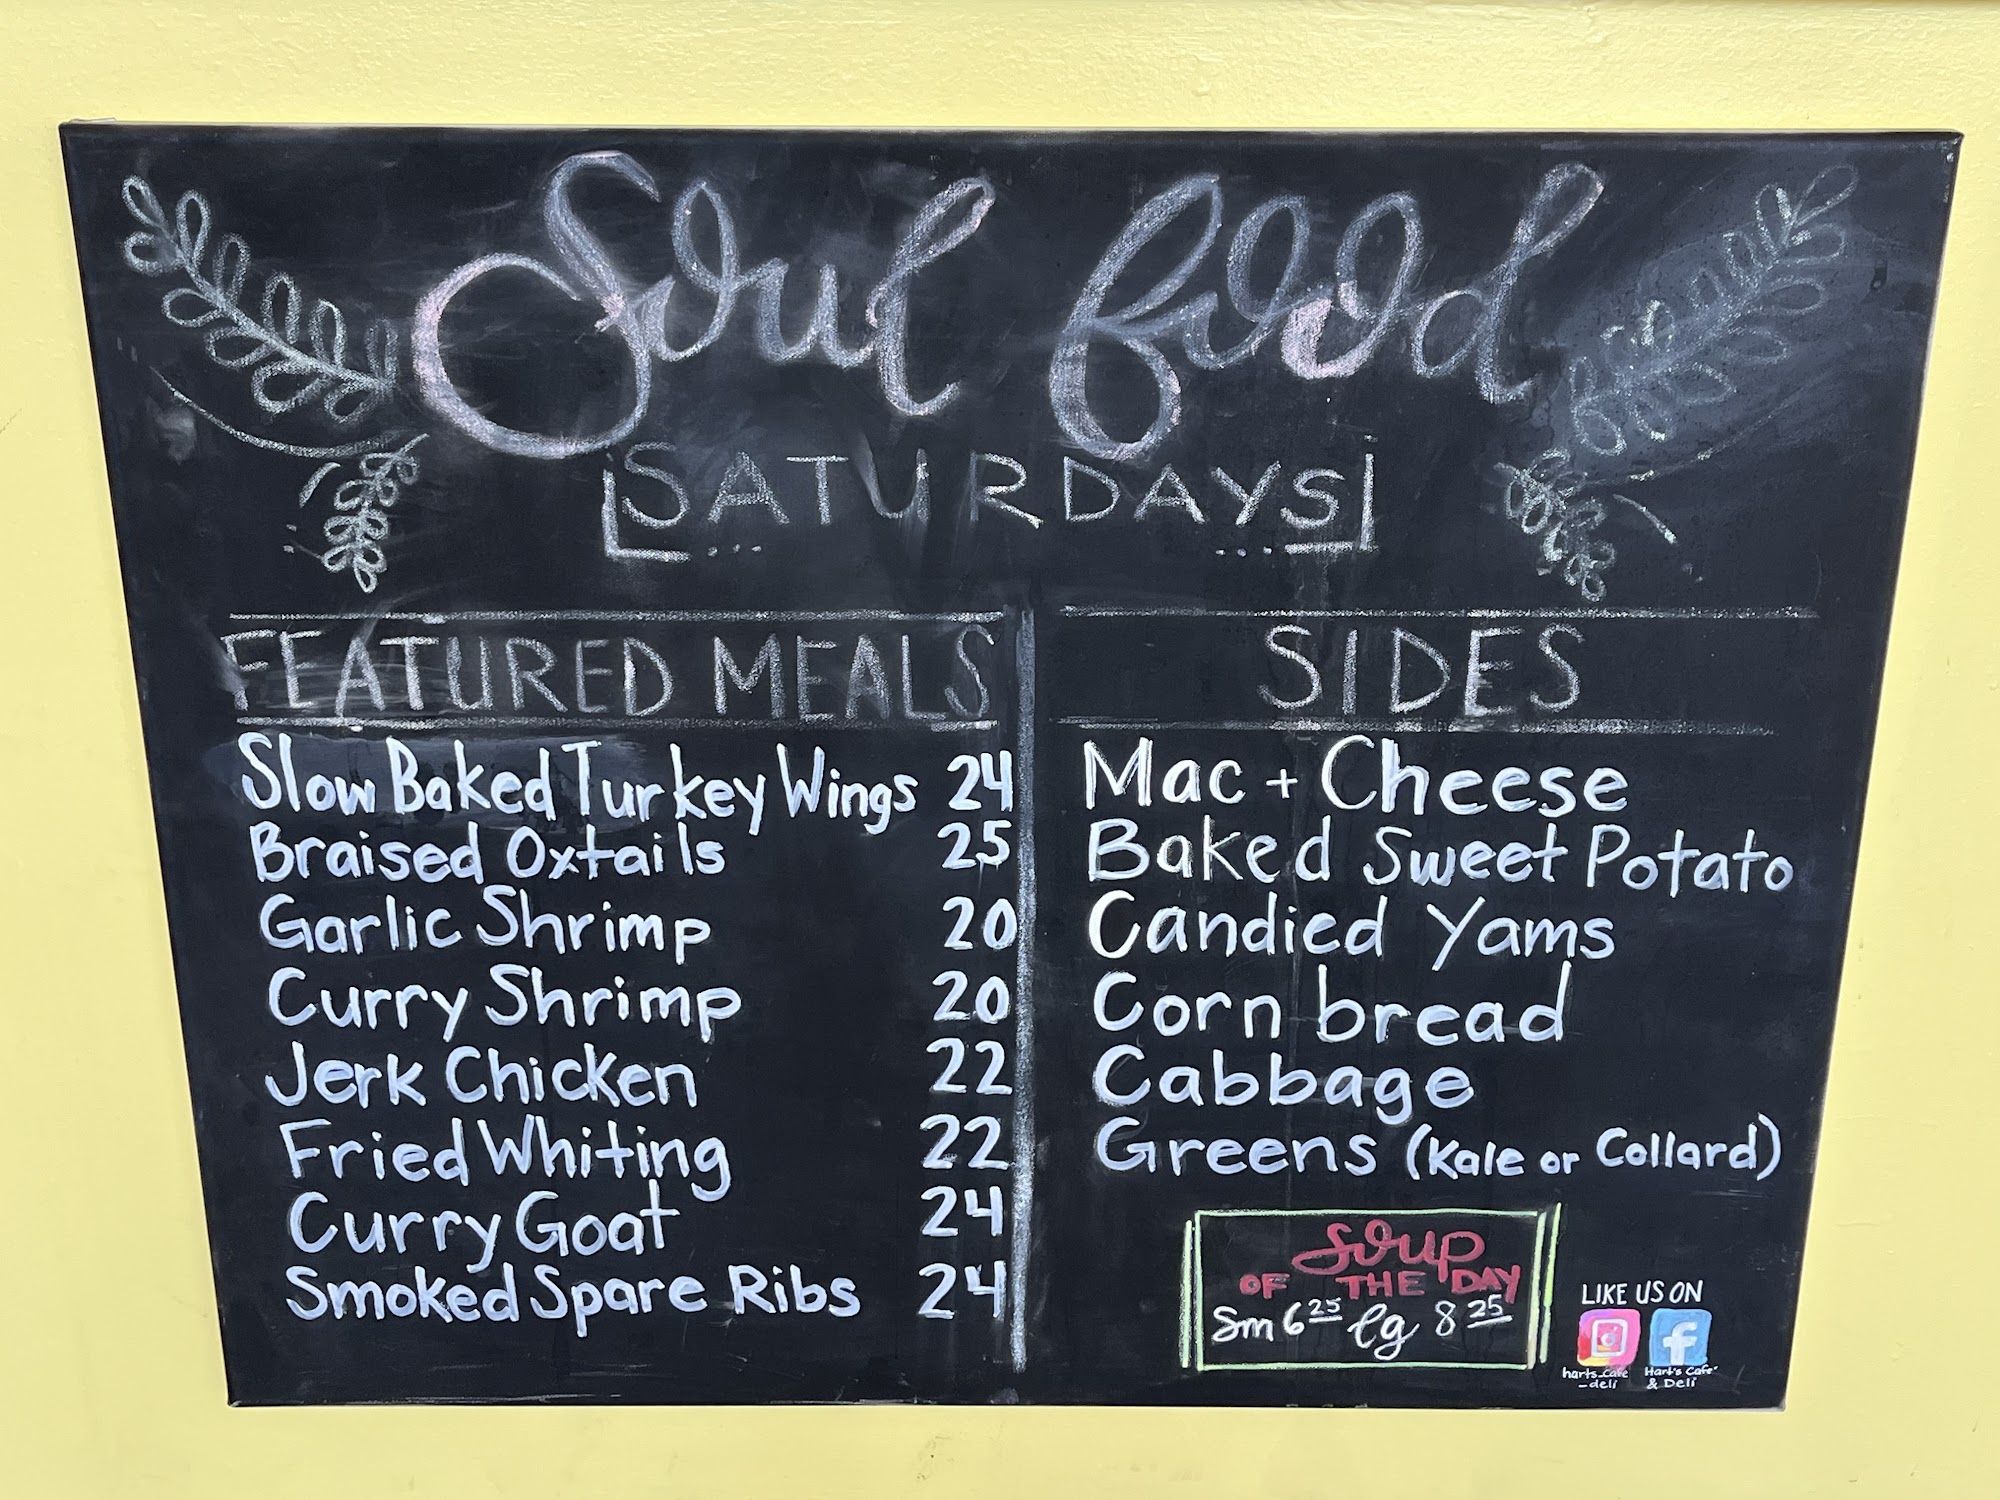 Soul food
SATURDAYS
FEATURED MEALS
Slow Baked Turkey Wings 24
Braised Oxtails 25
Garlic Shrimp 20
Curry Shrimp 20
Jerk Chicken 22
Fried Whiting 22
Curry Goat 24
Smoked Spare Ribs 24
SIDES
Mac + Cheese
Baked Sweet Potato
Candied Yams
Corn bread
Cabbage
Greens (Kale or Collard)
Soup
OF THE DAY
Sm 6 25 lg 8 25
LIKE US ON
f
harts_cafe
_deli
Hart's Cafe'
& Deli